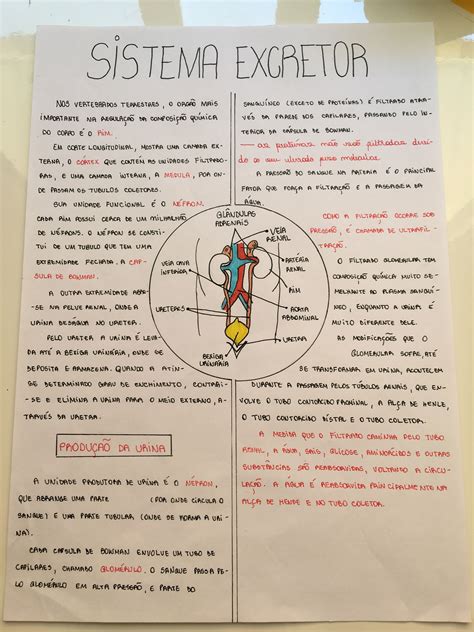 SISTEMA EXCRETOR
NOS VERTEBRADOS TERRESTRES, O ORGÃO MAIS
IMPORTANTE NA REGULAÇÃO DA COMPOSIÇÃO QUÍMICA
DO CORPO É O RIM.
EM CORTE LONGITUDINAL, MOSTRA UMA CAMADA EX-
TERNA, O CÓRTEX QUE CONTÉM AS UNIDADES FILTRADO-
RAS, E UMA CAMADA INTERNA, A MEDULA, POR ON-
DE PASSAM OS TUBULOS COLETORES.
SUA UNIDADE FUNCIONAL É O NÉFRON.
CADA RIM POSSUI CERCA DE UM MILHALHÃO
DE NÉFRONS. O NÉFRON SE CONSTI-
TUI DE UM TUBULO QUE TEM UMA
EXTREMIDADE FECHADA. A CAP-
SULA DE BOWMAN.
A OUTRA EXTREMIDADE ABRE-
SE NA PELVE RENAL, ONDE A
URINA DESÁGUA NO URETER.
PELO URETER A URINA É LEVA-
DA ATÉ A BEXIGA URINÁRIA, ONDE SE
DEPOSITA E ARMAZENA. QUANDO A ATIN-
GE DETERMINADO GRAU DE ENCHIMENTO, CONTRAI-
SE E ELIMINA A URINA PARA O MEIO EXTERNO, A-
TRAVÉS DA URETRA.
PRODUÇÃO DA URINA
A UNIDADE PRODUTORA DE URINA É O NÉFRON,
QUE ABRANGE UMA PARTE (POR ONDE CIRCULA O
SANGUE) E UMA PARTE TUBULAR (ONDE SE FORMA A URI-
NA).
CADA CAPSULA DE BOWMAN ENVOLVE UM TUBO DE
CAPILARES, CHAMADO GLOMÉRULO. O SANGUE PASSA PE-
LO GLOMÉRULO EM ALTA PRESSÃO, E PARTE DO
GLÂNDULAS
ADRENAIS
VEIA
RENAL
VEIA CAVA
INFERIOR
ARTÉRIA
RENAL
RIM
URETERES
AORTA
ABDOMINAL
URETRA
BEXIGA
URINÁRIA
SANGUÍNEO (EXCETO DE PROTEÍNAS) É FILTRADO ATRA-
VÉS DA PAREDE DOS CAPILARES, PASSANDO PELO IN-
TERIOR DA CÁPSULA DE BOWMAN.
as proteínas não são filtradas devi-
do ao seu elevado peso molecular.
A PRESSÃO DO SANGUE NA ARTÉRIA É O PRINCIPAL
FATOR QUE FORÇA A FILTRAÇÃO E A PASSAGEM DA
ÁGUA.
COMO A FILTRAÇÃO OCORRE SOB
PRESSÃO, É CHAMADA DE ULTRAFIL-
TRAÇÃO.
O FILTRADO GLOMERULAR TEM
COMPOSIÇÃO QUÍMICA MUITO SE-
MELHANTE AO PLASMA SANGUÍ-
NEO, ENQUANTO A URINA É
MUITO DIFERENTE DELE.
AS MODIFICAÇÕES QUE O
GLOMERULAR SOFRE, ATÉ
SE TRANSFORMAR EM URINA, ACONTECEM
DURANTE A PASSAGEM PELOS TÚBULOS RENAIS, QUE EN-
VOLVE O TUBO CONTORCIDO PROXIMAL, A ALÇA DE HENLE,
O TUBO CONTORCIDO DISTAL E O TUBO COLETOR.
A MEDIDA QUE O FILTRADO CAMINHA PELO TUBO
RENAL, A ÁGUA, SAIS, GLICOSE, AMINOÁCIDOS E OUTRAS
SUBSTÂNCIAS SÃO REABSORVIDAS, VOLTANDO A CIRCU-
LAÇÃO. A ÁGUA É REABSORVIDA PRINCIPALMENTE NA
ALÇA DE HENLE E NO TUBO COLETOR.